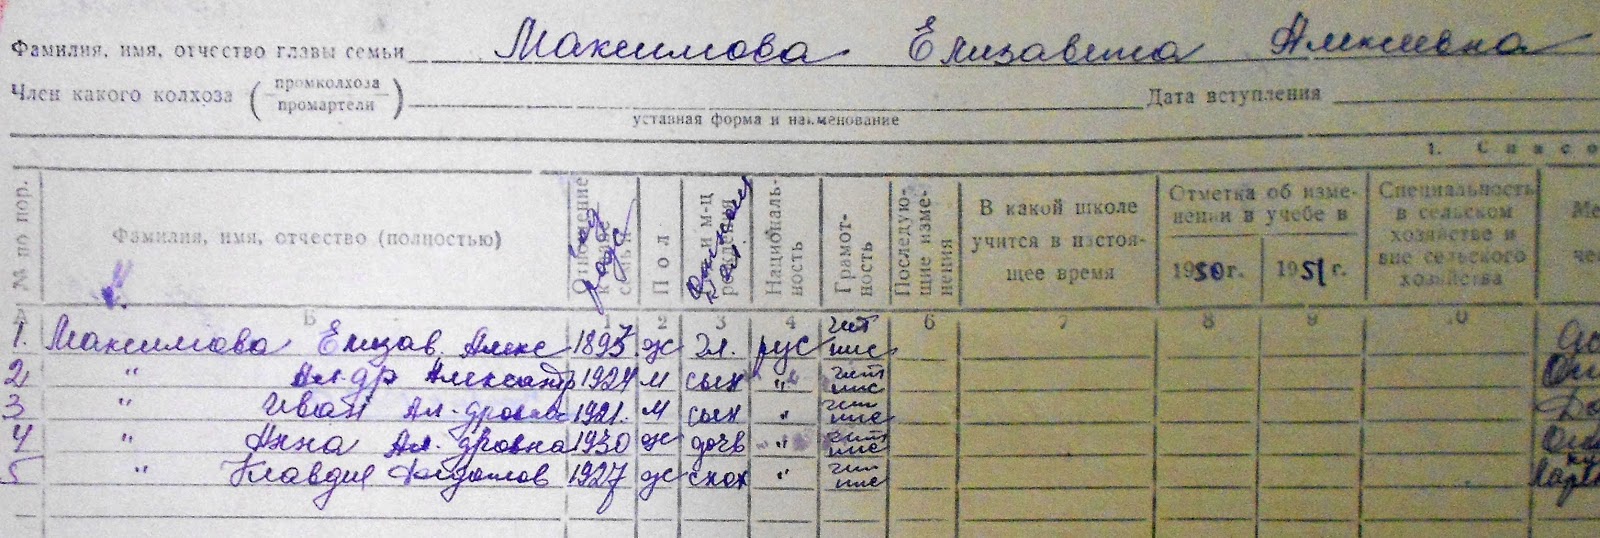 Фамилия, имя, отчество главы семьи Максимова Елизавета Алексеевна
Член какого колхоза (промколхоза промартели) Дата вступления
уставная форма и наименование
1. Списо
№ по пор. Фамилия, имя, отчество (полностью) Отношение Пол национальность Грамотность Последующие изменения В какой школе учится в настоящее время Отметка об изменении в учебе в 1950 г. 1951 г. Специальность в сельском хозяйстве и вне сельского хозяйства
А Б 1 2 3 4 6 7 8 9 10
1. Максимова Елизав. Алекс 1897 ж гл. рус чит пис
2 " Ал-др Александр 1924 м сын " чит пис
3 " Иван Ал-дрович 1921. м сын " чит пис
4 " Анна Ал-дровна 1930 ж дочь " чит пис
5 " Клавдия 1927 ж снох " чит пис